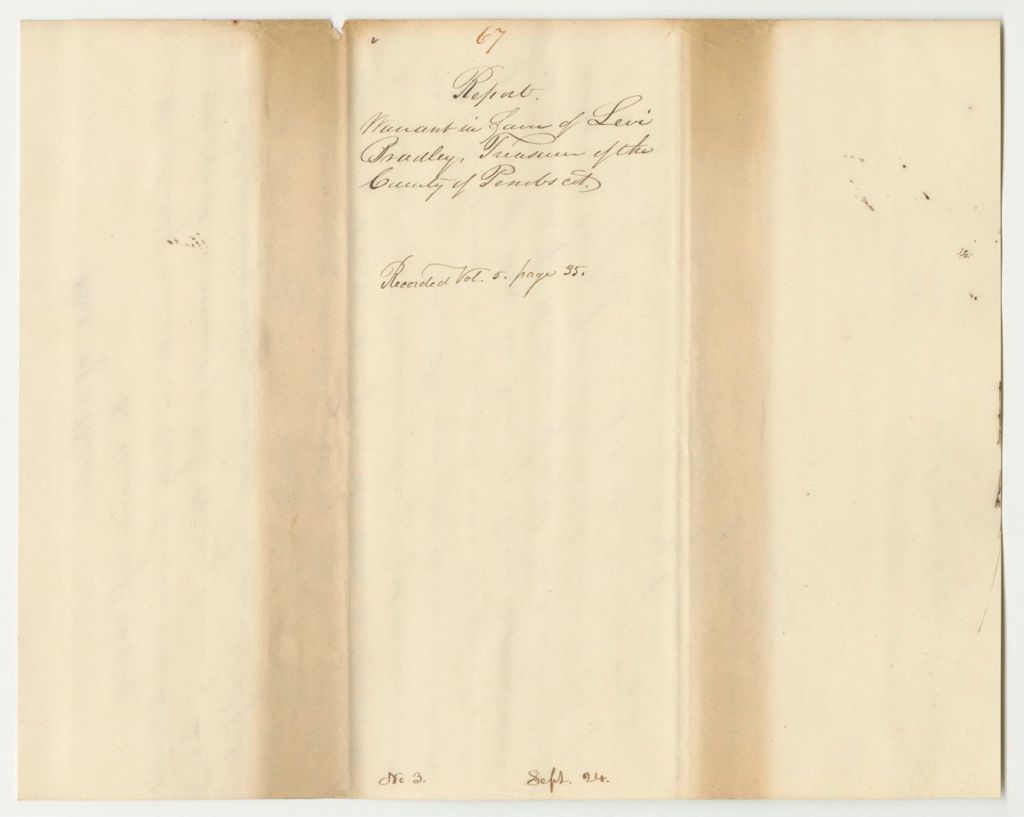 67
Report.
Warrant in favor of Levi
Bradley, Treasurer of the
County of Penobscot,
Recorded Vol. 5. page 35.
No 3. Sept. 24.